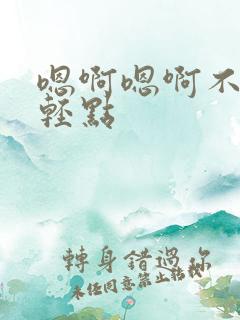 嗯啊嗯啊不
輕點
轉身錯過你
未任同意禁止轉載